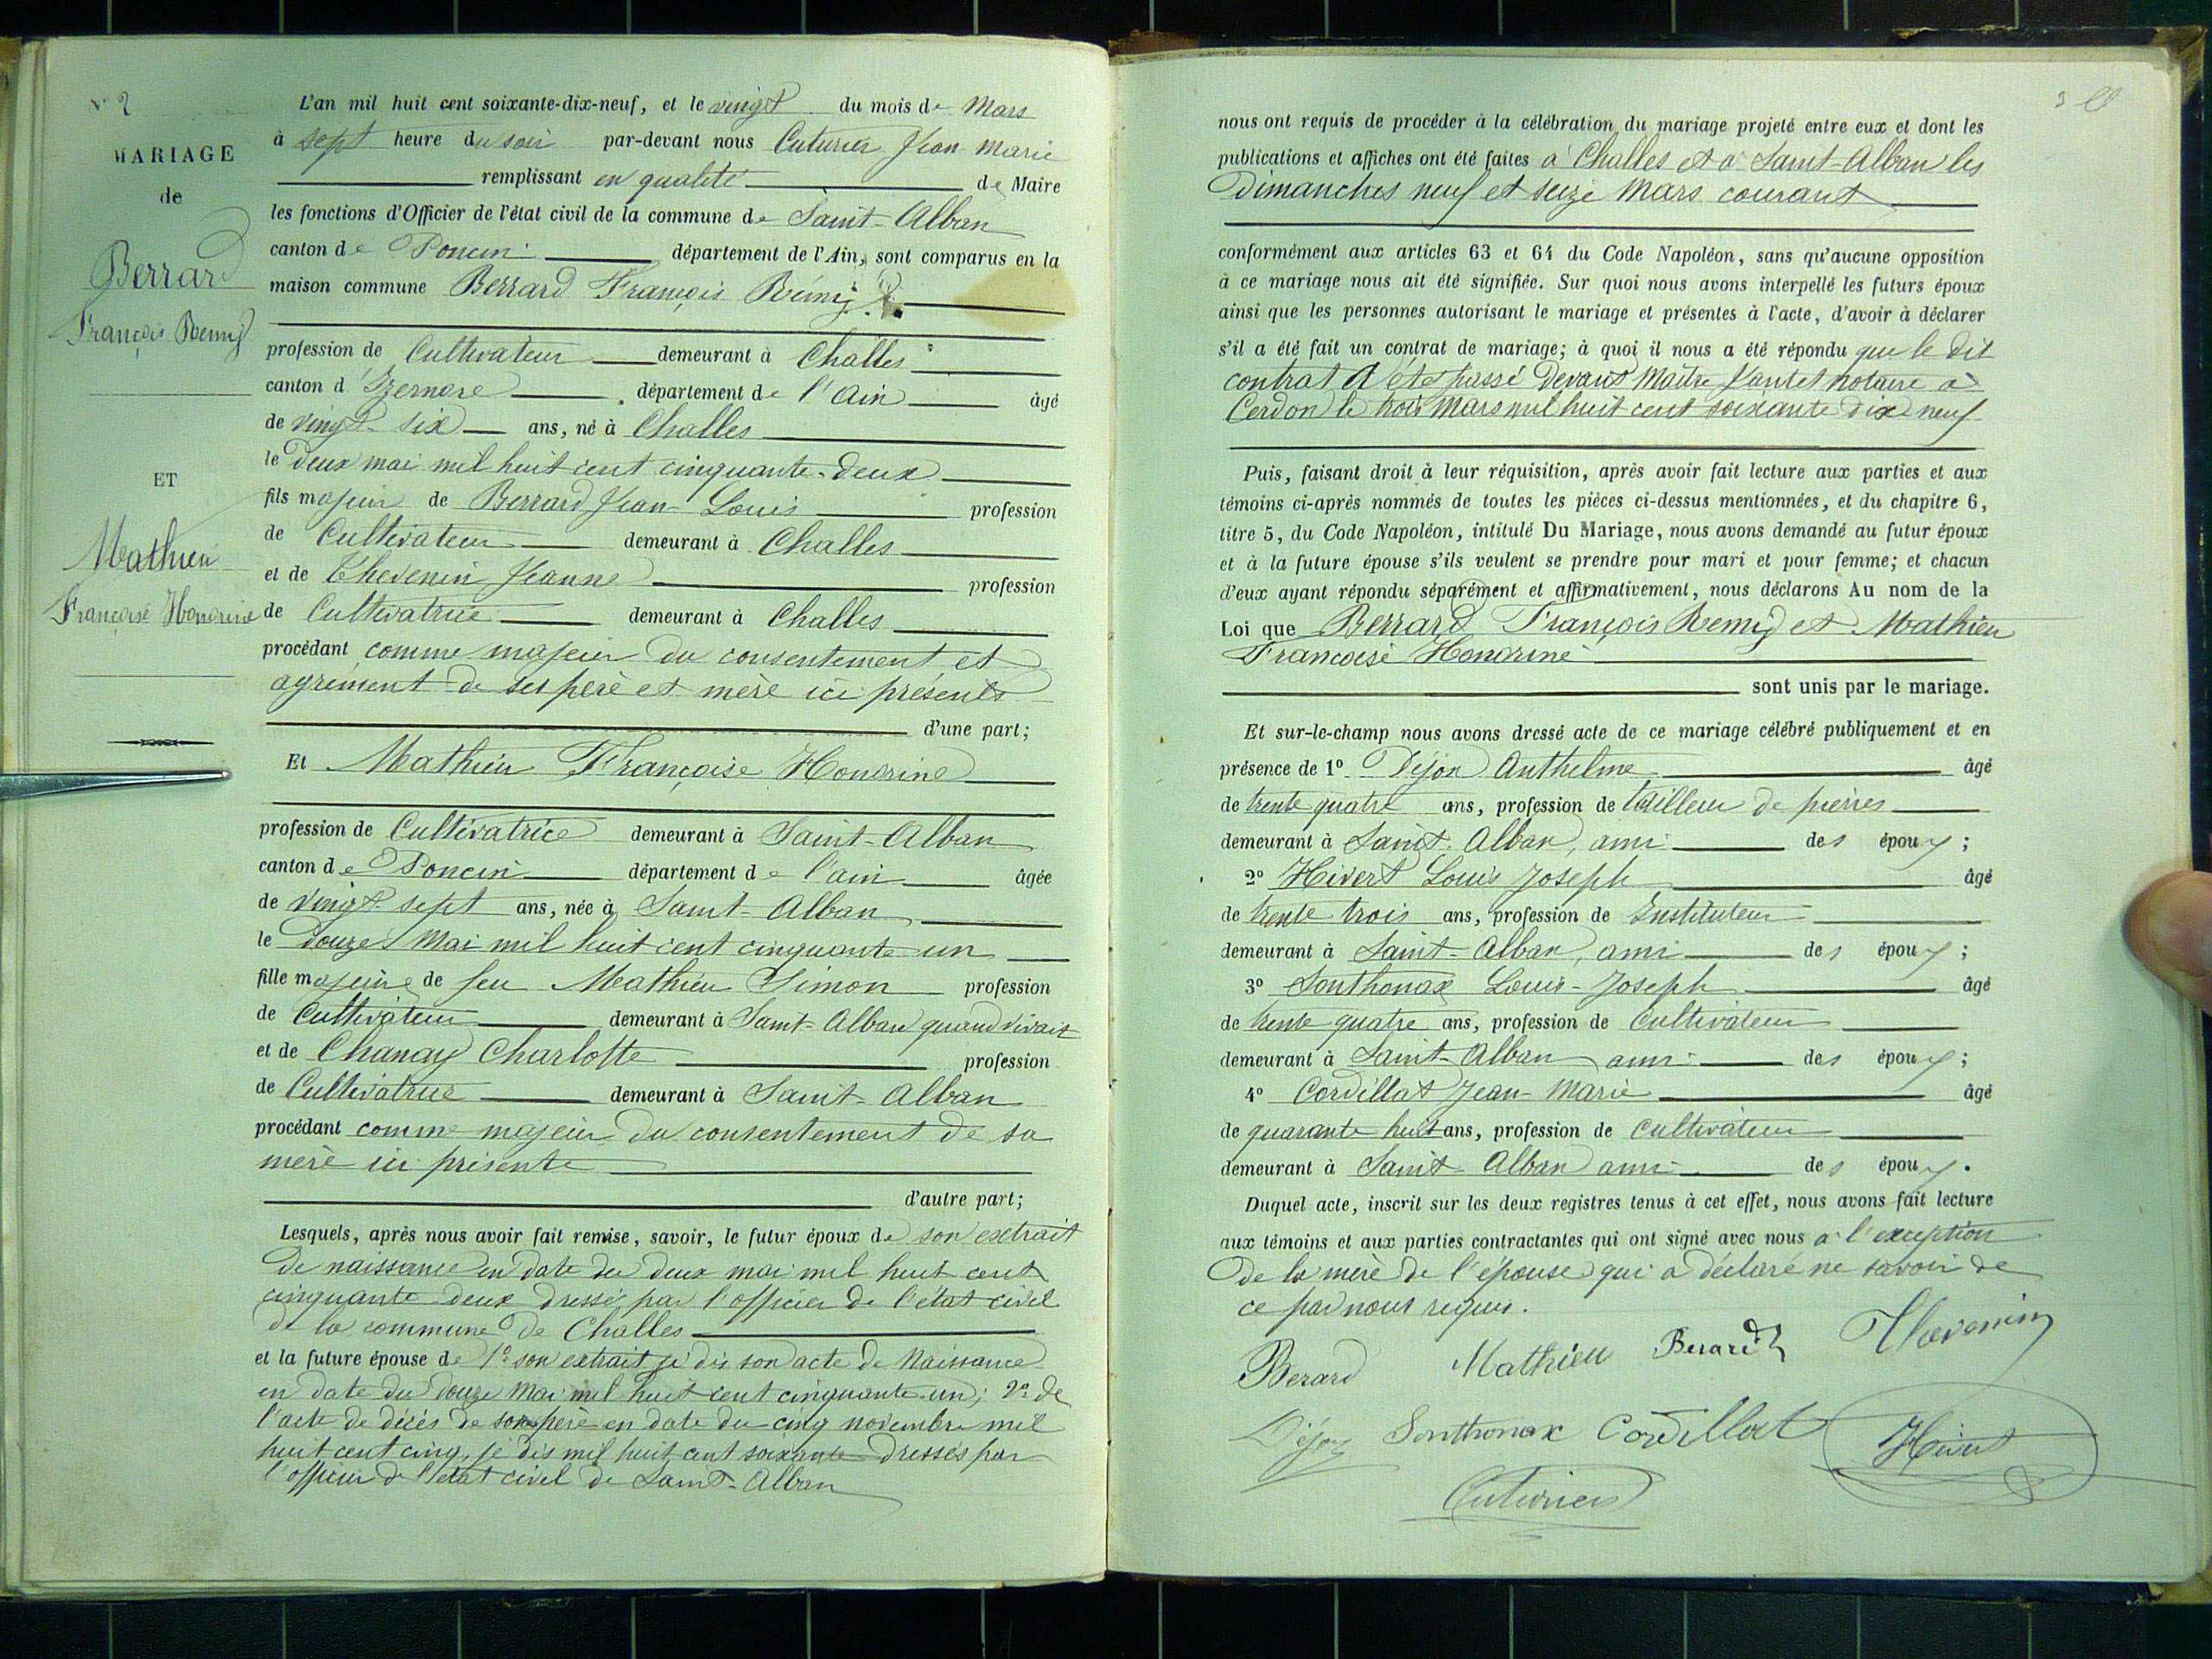 N° 2
MARIAGE
de
Berrard
François Remy
ET
Mathieu
Françoise Honorine
L'an mil huit cent soixante-dix-neuf, et le vingt du mois de Mars
à sept heure du soir par-devant nous Cuturier Jean Marie
remplissant en qualité de Maire
les fonctions d'Officier de l'état civil de la commune de Saint-Alban
canton de Poncin département de l'Ain, sont comparus en la
maison commune Berrard François Rémy
profession de Cultivateur demeurant à Challes
canton d'Izernore département de l'Ain âgé
de vingt-six ans, né à Challes
le deux mai mil huit cent cinquante-deux
fils majeur de Berrard Jean-Louis profession
de Cultivateur demeurant à Challes
et de Thevenin Jeanne profession
de Cultivatrice demeurant à Challes
procédant comme majeur du consentement et
agrément de ses père et mère ici présents
d'une part;
Et Mathieu Françoise Honorine
profession de Cultivatrice demeurant à Saint-Alban
canton de Poncin département de l'ain âgée
de vingt-sept ans, née à Saint-Alban
le douze Mai mil huit cent cinquante-un
fille majeure de feu Mathieu Simon profession
de Cultivateur demeurant à Saint-Alban quand vivait
et de Chanay Charlotte profession
de Cultivatrice demeurant à Saint-Alban
procédant comme majeur du consentement de sa
mère ici présente
d'autre part;
Lesquels, après nous avoir fait remise, savoir, le futur époux de son extrait
de naissance en date du deux mai mil huit cent
cinquante-deux dressé par l'officier de l'état civil
de la commune de Challes
et la future épouse de 1° son extrait je dis son acte de Naissance
en date du douze Mai mil huit cent cinquante-un; 2° de
l'acte de décès de son père en date du cinq novembre mil
huit cent cinq, je dis mil huit cent soixante dressés par
l'officier de l'état civil de Saint-Alban
3
nous ont requis de procéder à la célébration du mariage projeté entre eux et dont les
publications et affiches ont été faites à Challes et à Saint-Alban les
Dimanches neuf et seize Mars courant
conformément aux articles 63 et 64 du Code Napoléon, sans qu'aucune opposition
à ce mariage nous ait été signifiée. Sur quoi nous avons interpellé les futurs époux
ainsi que les personnes autorisant le mariage et présentes à l'acte, d'avoir à déclarer
s'il a été fait un contrat de mariage; à quoi il nous a été répondu que le dit
contrat a été passé devant Maître notaire à
Cerdon le trois Mars mil huit cent soixante dix neuf
Puis, faisant droit à leur réquisition, après avoir fait lecture aux parties et aux
témoins ci-après nommés de toutes les pièces ci-dessus mentionnées, et du chapitre 6,
titre 5, du Code Napoléon, intitulé Du Mariage, nous avons demandé au futur époux
et à la future épouse s'ils veulent se prendre pour mari et pour femme; et chacun
d'eux ayant répondu séparément et affirmativement, nous déclarons Au nom de la
Loi que Berrard François Remy et Mathieu
Francoise Honorine
sont unis par le mariage.
Et sur-le-champ nous avons dressé acte de ce mariage célébré publiquement et en
présence de 1° Déjon Anthelme âgé
de trente quatre ans, profession de tailleur de pierres
demeurant à Saint-Alban, ami des époux;
2° Hivert Louis Joseph âgé
de trente trois ans, profession de Instituteur
demeurant à Saint-Alban, ami des époux;
3° Sonthonax Louis-Joseph âgé
de trente quatre ans, profession de Cultivateur
demeurant à Saint-Alban ami des époux;
4° Cordillat Jean-Marie âgé
de quarante huit ans, profession de cultivateur
demeurant à Saint-Alban ami des époux.
Duquel acte, inscrit sur les deux registres tenus à cet effet, nous avons fait lecture
aux témoins et aux parties contractantes qui ont signé avec nous à l'exception
de la mère de l'épouse qui a déclaré ne savoir de
ce par nous requis.
Berard Mathieu Berard Thevenin
Déjon Sonthonax Cordillat Hivert
Cuturier